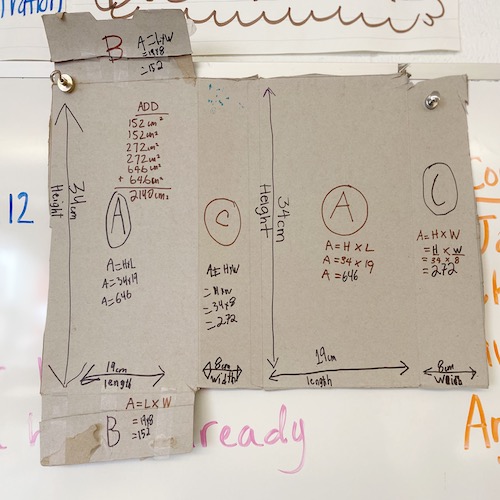 B A=L×W
=19×8
=152
ADD
152cm²
152cm²
272cm²
272cm²
646cm²
+ 646cm²
2140cm²
34cm
Height
A
A=H×L
A=34×19
A=646
19cm
length
C
A=H×W
=H×W
=34×8
=272
8cm
width
34cm
Height
A
A=H×L
A=34×19
A=646
19cm
length
C
A=H×W
=H×W
=34×8
=272
8cm
width
A=L×W
B =19×8
=152
12
ready